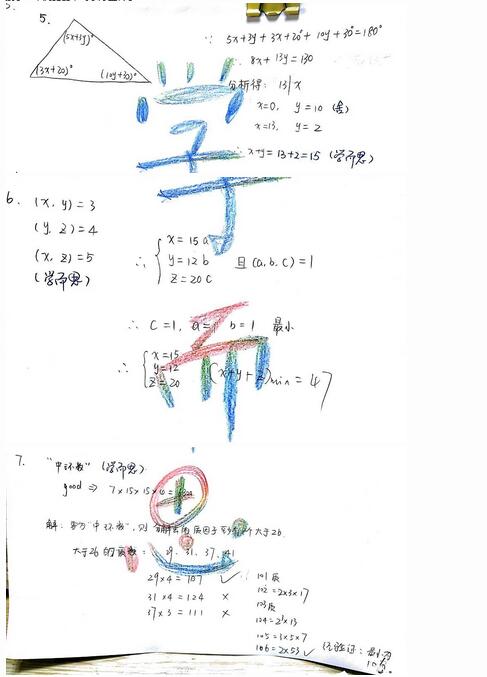 5.
(5x+3y)°
(3x+20)° (10y+30)°
∵ 5x+3y+3x+20°+10y+30°=180°
8x+13y=130
分析得: 13|x
x=0, y=10 (舍)
x=13, y=2
∴ x+y=13+2=15 (学而思)
学
6. (x, y)=3
(y, z)=4
(x, z)=5
(学而思)
∴ { x=15a
y=12b 且(a,b,c)=1
z=20c
∴ C=1, a=1 b=1 最小
∴ { x=15
y=12 (x+y+z)min=47
z=20
而
7. "中环数" (学而思)
good ⇒ 7×15×15×
大于26的质数: 29, 31, 37, 41
29×4=107 ✓
31×4=124 ×
37×3=111 ×
101质
102=2×3×17
103质
104=2³×13
105=3×5×7
106=2×53 ✓